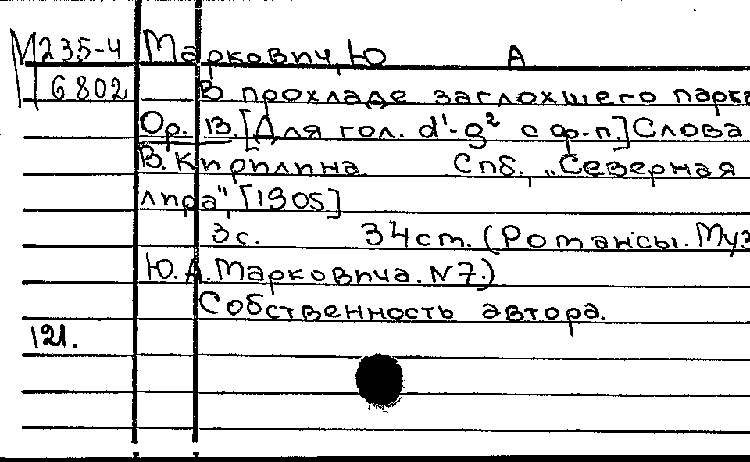 М235-4 Маркович, Ю А
I 6802 В прохладе заглохшего парка
Ор. 13. [Для гол. d¹-g² с ф-п.] Слова
В. Кирилина Спб., „Северная
лира", [1905]
3с. 34 ст. (Романсы. Муз
Ю. А. Марковича. N7.)
Собственность автора.
121.